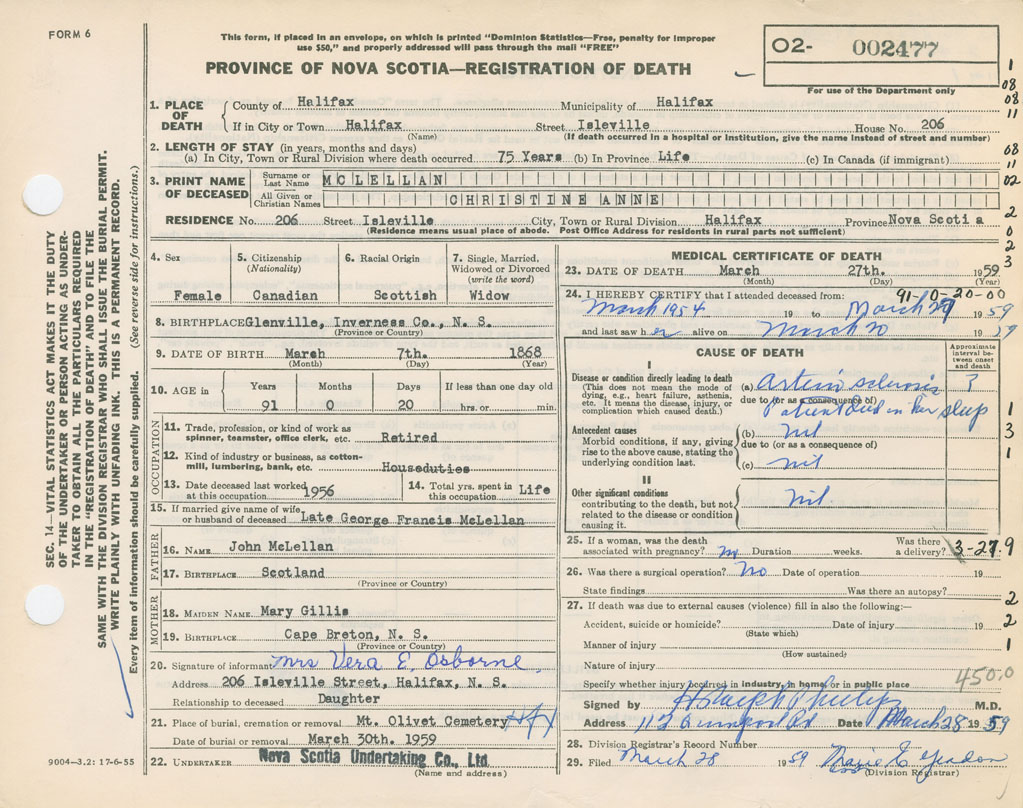 FORM 6
This form, if placed in an envelope, on which is printed "Dominion Statistics—Free, penalty for improper
use $50," and properly addressed will pass through the mail "FREE"
PROVINCE OF NOVA SCOTIA—REGISTRATION OF DEATH
O2- 002477
For use of the Department only
1. PLACE OF DEATH
County of Halifax Municipality of Halifax
If in City or Town Halifax Street Isleville House No. 206
(Name) (If death occurred in a hospital or institution, give the name instead of street and number)
2. LENGTH OF STAY (in years, months and days)
(a) In City, Town or Rural Division where death occurred 75 Years (b) In Province Life (c) In Canada (if immigrant)
3. PRINT NAME OF DECEASED
Surname or Last Name MCLELLAN
All Given or Christian Names CHRISTINE ANNE
RESIDENCE No. 206 Street Isleville City, Town or Rural Division Halifax Province Nova Scotia
(Residence means usual place of abode. Post Office Address for residents in rural parts not sufficient)
4. Sex
Female
5. Citizenship
(Nationality)
Canadian
6. Racial Origin
Scottish
7. Single, Married,
Widowed or Divorced
(write the word)
Widow
8. BIRTHPLACE Glenville, Inverness Co., N. S.
(Province or Country)
9. DATE OF BIRTH March 7th. 1868
(Month) (Day) (Year)
10. AGE in Years Months Days If less than one day old
91 0 20 hrs. or min.
OCCUPATION
11. Trade, profession, or kind of work as
spinner, teamster, office clerk, etc. Retired
12. Kind of industry or business, as cotton-
mill, lumbering, bank, etc. Houseduties
13. Date deceased last worked
at this occupation 1956
14. Total yrs. spent in
this occupation Life
15. If married give name of wife
or husband of deceased Late George Francis McLellan
FATHER
16. NAME John McLellan
17. BIRTHPLACE Scotland
(Province or Country)
MOTHER
18. MAIDEN NAME Mary Gillis
19. BIRTHPLACE Cape Breton, N. S.
(Province or Country)
20. Signature of informant Mrs Vera E. Osborne.
Address 206 Isleville Street, Halifax, N. S.
Relationship to deceased Daughter
21. Place of burial, cremation or removal Mt. Olivet Cemetery Hfx
Date of burial or removal March 30th. 1959
22. UNDERTAKER Nova Scotia Undertaking Co., Ltd.
(Name and address)
9004—3.2: 17-6-55
MEDICAL CERTIFICATE OF DEATH
23. DATE OF DEATH March 27th. 1959
(Month) (Day) (Year)
91-0-20-00
24. I HEREBY CERTIFY that I attended deceased from:
March 1954 19 to March 1959
and last saw her alive on March 20 19
CAUSE OF DEATH
Approximate
interval be-
tween onset
and death
I
Disease or condition directly leading to death
(This does not mean the mode of
dying, e.g., heart failure, asthenia,
etc. It means the disease, injury, or
complication which caused death.)
(a) Arterio sclerosis ?
due to (or as a consequence of)
Patient died in her sleep
Antecedent causes
Morbid conditions, if any, giving
rise to the above cause, stating the
underlying condition last.
(b) nil
due to (or as a consequence of)
(c) nil
II
Other significant conditions
contributing to the death, but not
related to the disease or condition
causing it.
nil.
25. If a woman, was the death
associated with pregnancy? no Duration weeks. Was there
a delivery?
3-27.9
26. Was there a surgical operation? No Date of operation 19
State findings Was there an autopsy?
27. If death was due to external causes (violence) fill in also the following:—
Accident, suicide or homicide? Date of injury 19
(State which)
Manner of injury
(How sustained)
Nature of injury
Specify whether injury occurred in industry, in home, or in public place
450.0
Signed by M.D.
Address Date March 28 1959
28. Division Registrar's Record Number
29. Filed March 28 1959
(Division Registrar)
1
08
08
11
08
11
02
2
0
2
3
1
3
1
2
2
1
SEC. 14—VITAL STATISTICS ACT MAKES IT THE DUTY
OF THE UNDERTAKER OR PERSON ACTING AS UNDER-
TAKER TO OBTAIN ALL THE PARTICULARS REQUIRED
IN THE "REGISTRATION OF DEATH" AND TO FILE THE
SAME WITH THE DIVISION REGISTRAR WHO SHALL ISSUE THE BURIAL PERMIT.
WRITE PLAINLY WITH UNFADING INK. THIS IS A PERMANENT RECORD.
Every item of information should be carefully supplied. (See reverse side for instructions.)